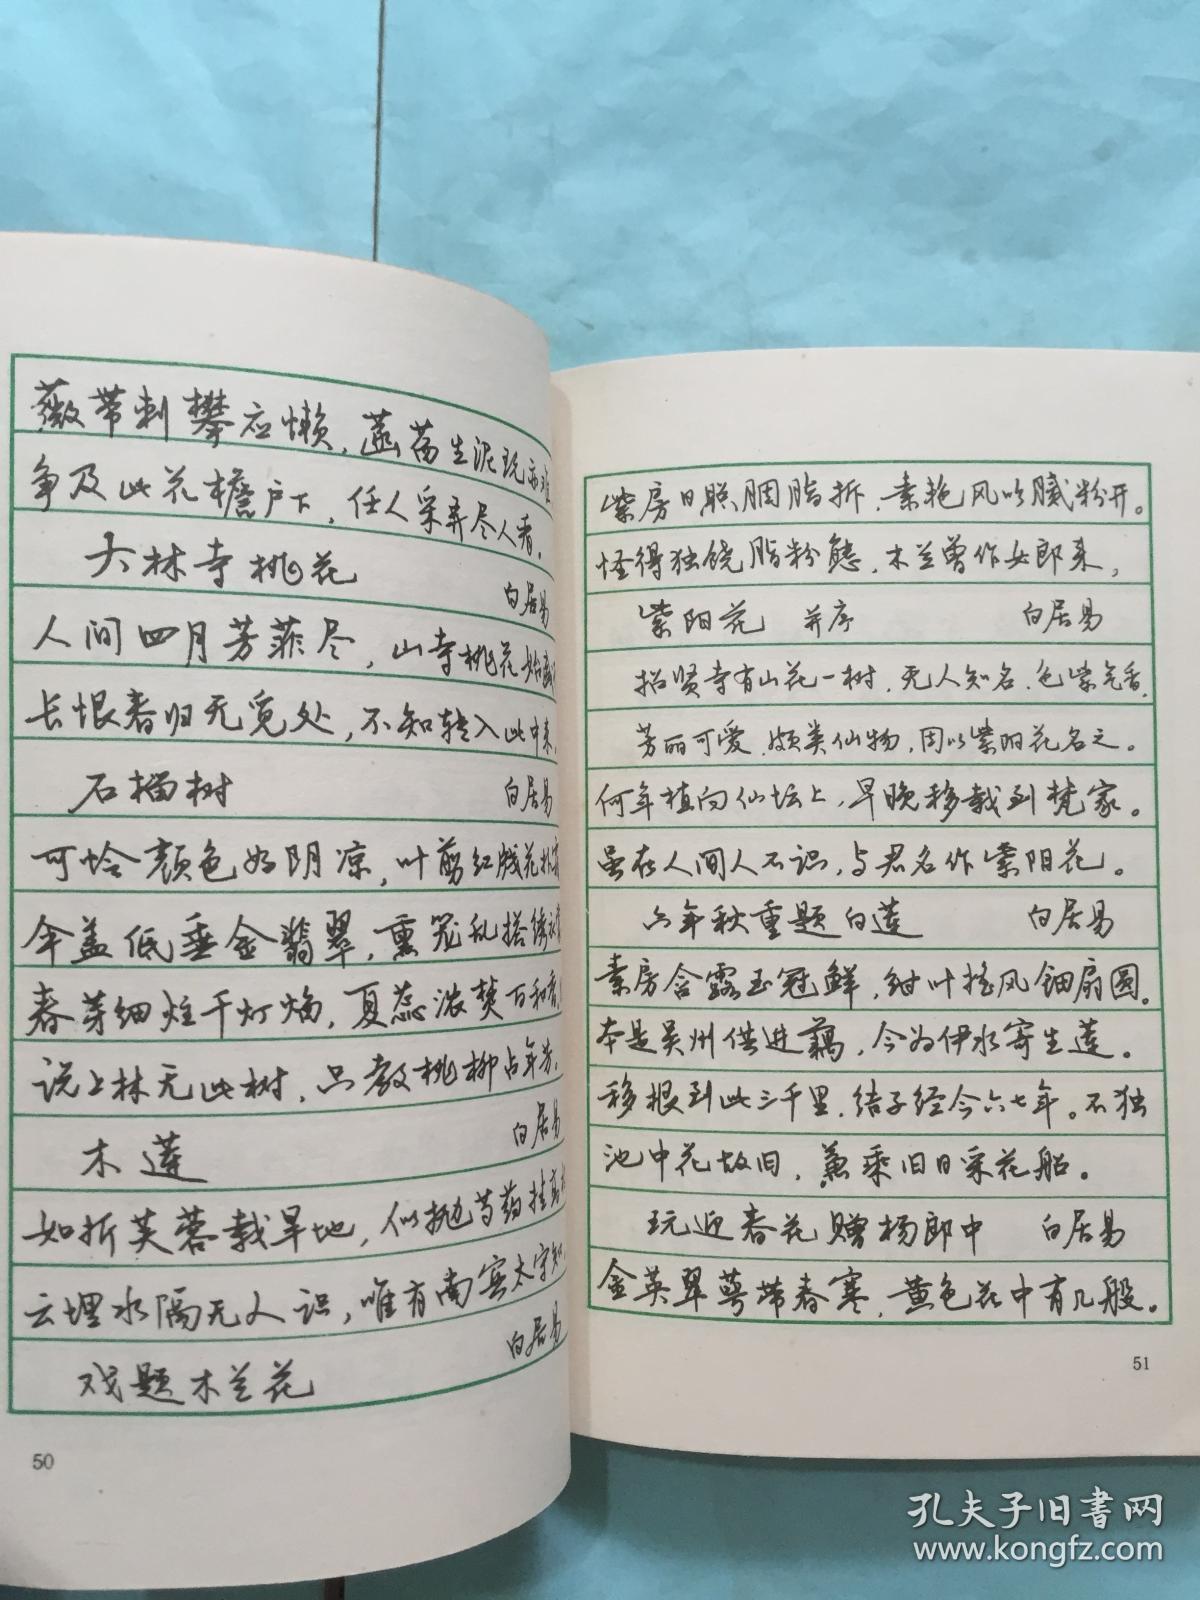 薇带刺攀应懒，菡萏生泥玩亦难
争及此花檐户下，任人采弄尽人看。
大林寺桃花
白居易
人间四月芳菲尽，山寺桃花始盛
长恨春归无觅处，不知转入此中来
石榴树
白居易
可怜颜色好阴凉，叶剪红牋花扑霜
伞盖低垂金翡翠，熏笼乱搭绣衣裳
春芽细炷千灯焰，夏蕊浓焚百和香
说上林无此树，只教桃柳占年芳。
白居易
木莲
如折芙蓉栽旱地，似抛芍药挂高枝
云埋水隔无人识，唯有南宾太守知
白居易
戏题木兰花
50
紫房日照胭脂拆，素艳风吹腻粉开。
怪得独饶脂粉态，木兰曾作女郎来，
紫阳花 并序 白居易
招贤寺有山花一树，无人知名，色紫气香，
芳丽可爱，颇类仙物，因以紫阳花名之。
何年植向仙坛上，早晚移栽到梵家。
虽在人间人不识，与君名作紫阳花。
六年秋重题白莲 白居易
素房含露玉冠鲜，绀叶摇风钿扇圆。
本是吴州供进藕，今为伊水寄生莲。
移根到此三千里，结子经今六七年。不独
池中花故旧，兼乘旧日采花船。
玩迎春花赠杨郎中 白居易
金英翠萼带春寒，黄色花中有几般。
51
孔夫子旧书网
www.kongfz.com